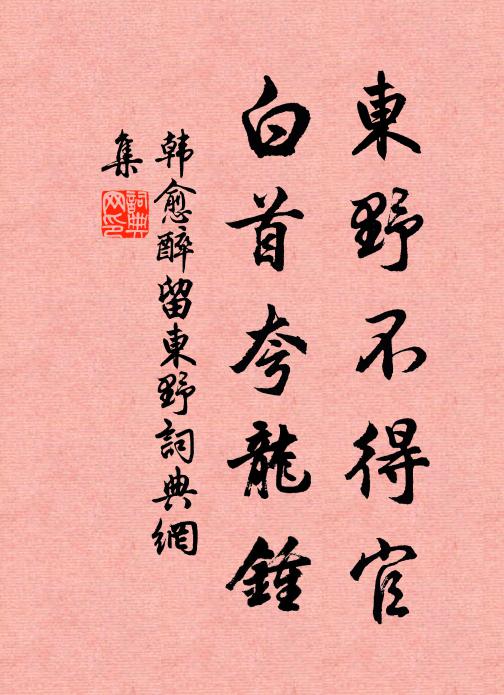 東野不得官
白首夸龍鍾
韩愈醉留東野詞典網
集
詞典
网印